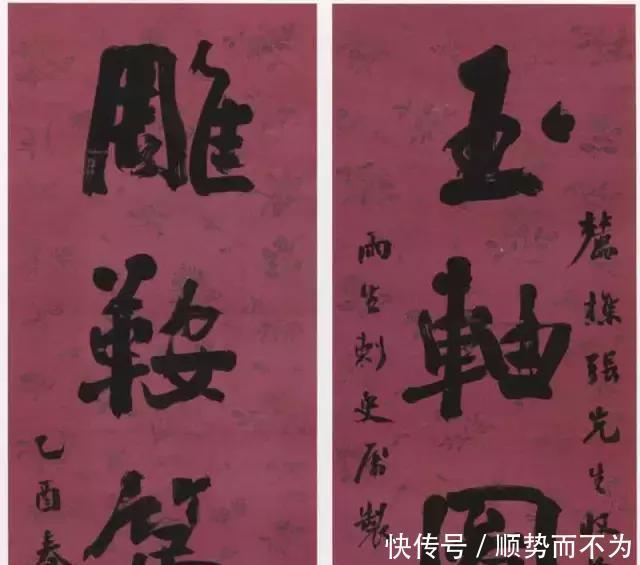 樵張先生
玉軸
雨生刺史屬製
雕鞍
乙酉春
快传号 / 顺势而不为